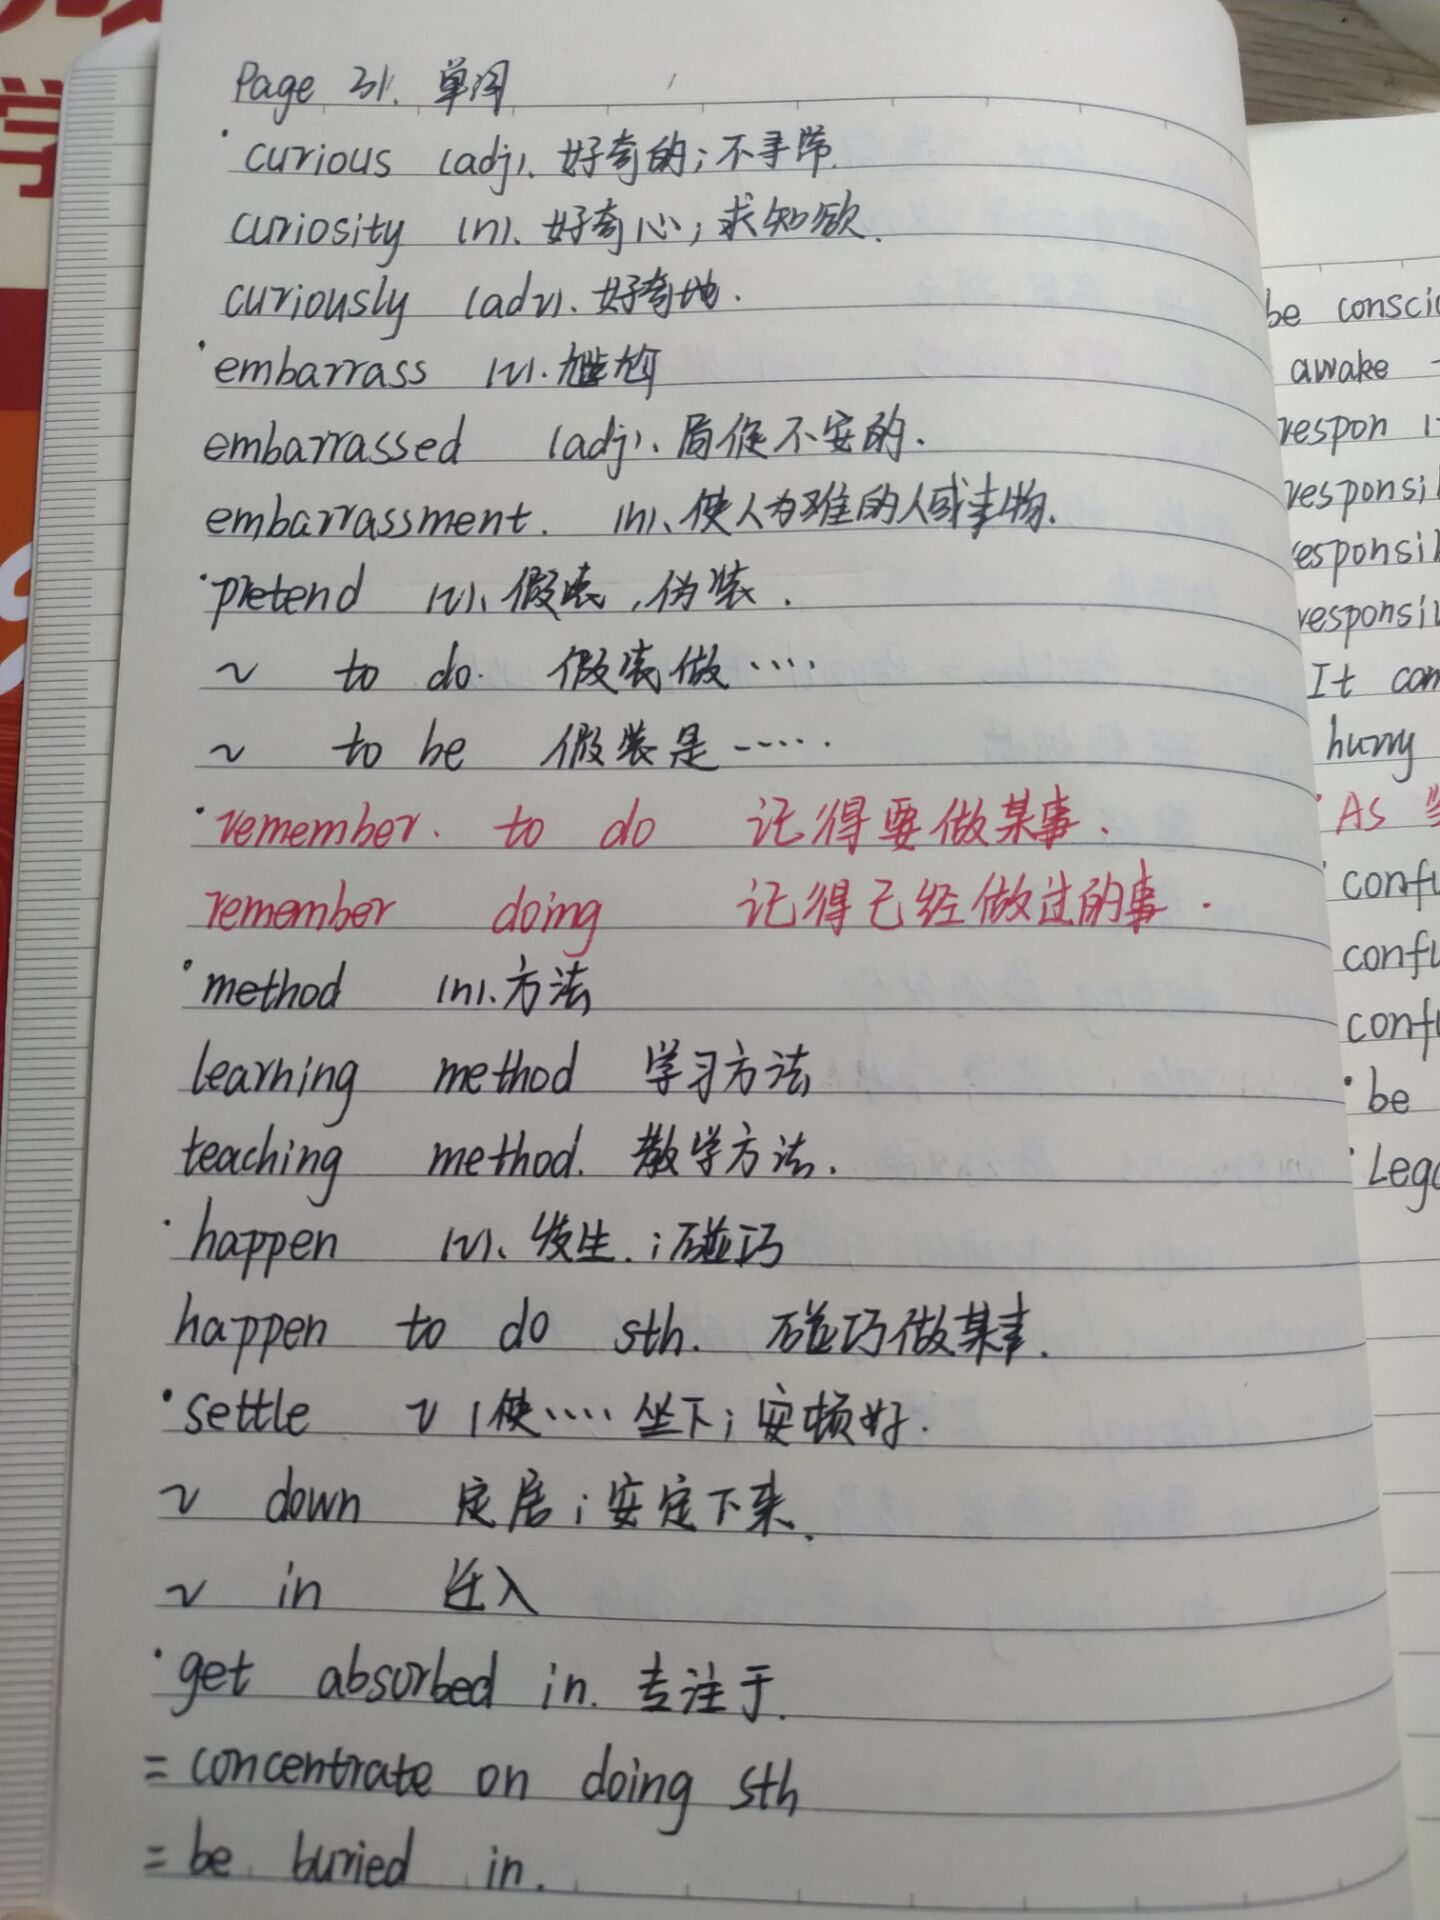 Page 31. 单词
·curious (adj). 好奇的；不寻常.
curiosity (n). 好奇心；求知欲.
curiously (adv). 好奇地.
·embarrass (v). 尴尬
embarrassed (adj). 局促不安的.
embarrassment. (n). 使人为难的人或事物.
·pretend (v). 假装，伪装.
~ to do. 假装做……
~ to be 假装是……
·remember. to do 记得要做某事.
remember doing 记得已经做过的事.
·method (n). 方法
learning method 学习方法
teaching method. 教学方法.
·happen (v). 发生.；碰巧
happen to do sth. 碰巧做某事.
·settle v (使……坐下；安顿好.
~ down 定居；安定下来.
~ in 迁入
·get absorbed in. 专注于.
= concentrate on doing sth
= be buried in.
学
be
awake
respon
It
hurry
·As
·be